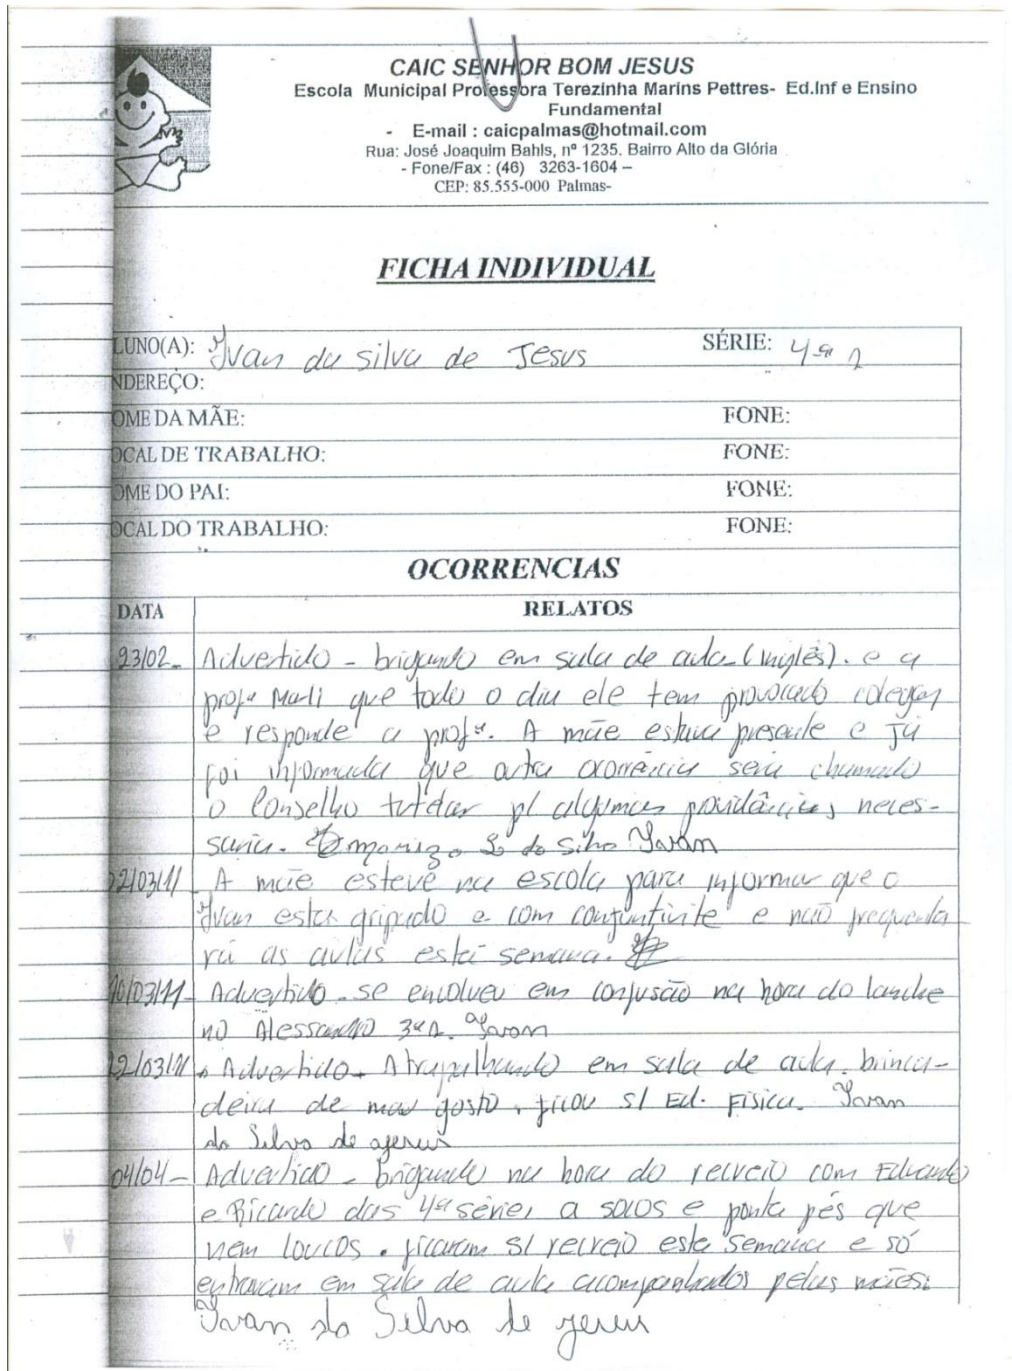 CAIC SENHOR BOM JESUS
Escola Municipal Professora Terezinha Marins Pettres- Ed.Inf e Ensino
Fundamental
- E-mail : caicpalmas@hotmail.com
Rua: José Joaquim Bahls, nº 1235. Bairro Alto da Glória
- Fone/Fax : (46) 3263-1604 –
CEP: 85.555-000 Palmas-
FICHA INDIVIDUAL
LUNO(A): Ivan da silva de Jesus SÉRIE: 4ª
NDEREÇO:
OME DA MÃE: FONE:
OCAL DE TRABALHO: FONE:
OME DO PAI: FONE:
OCAL DO TRABALHO: FONE:
OCORRENCIAS
DATA RELATOS
23/02- Advertido - brigando em sala de aula (inglês). e a
profª Marli que todo o dia ele tem provocado colegas
e responde a profª. A mãe estava presente e já
foi informada que outra ocorrência será chamado
o Conselho tutelar p/ algumas providências neces-
sária. da Silva Ivan
22/03/11 A mãe esteve na escola para informar que o
Ivan esta gripado e com conjuntivite e não frequenta
rá as aulas está semana.
10/03/11- Advertido - se envolveu em confusão na hora do lanche
no Alessandro 3ª Ivan
22/03/11 Advertido - Atrapalhando em sala de aula. brinca-
deira de mau gosto, ficou s/ Ed. Física. Ivan
da Silva de jesus
04/04- Advertido - brigando na hora do recreio com Eduardo
e Ricardo das 4ª séries a socos e ponta pés que
nem loucos. ficaram s/ recreio esta semana e só
entravam em sala de aula acompanhados pelas mães.
Ivan da Silva de jesus